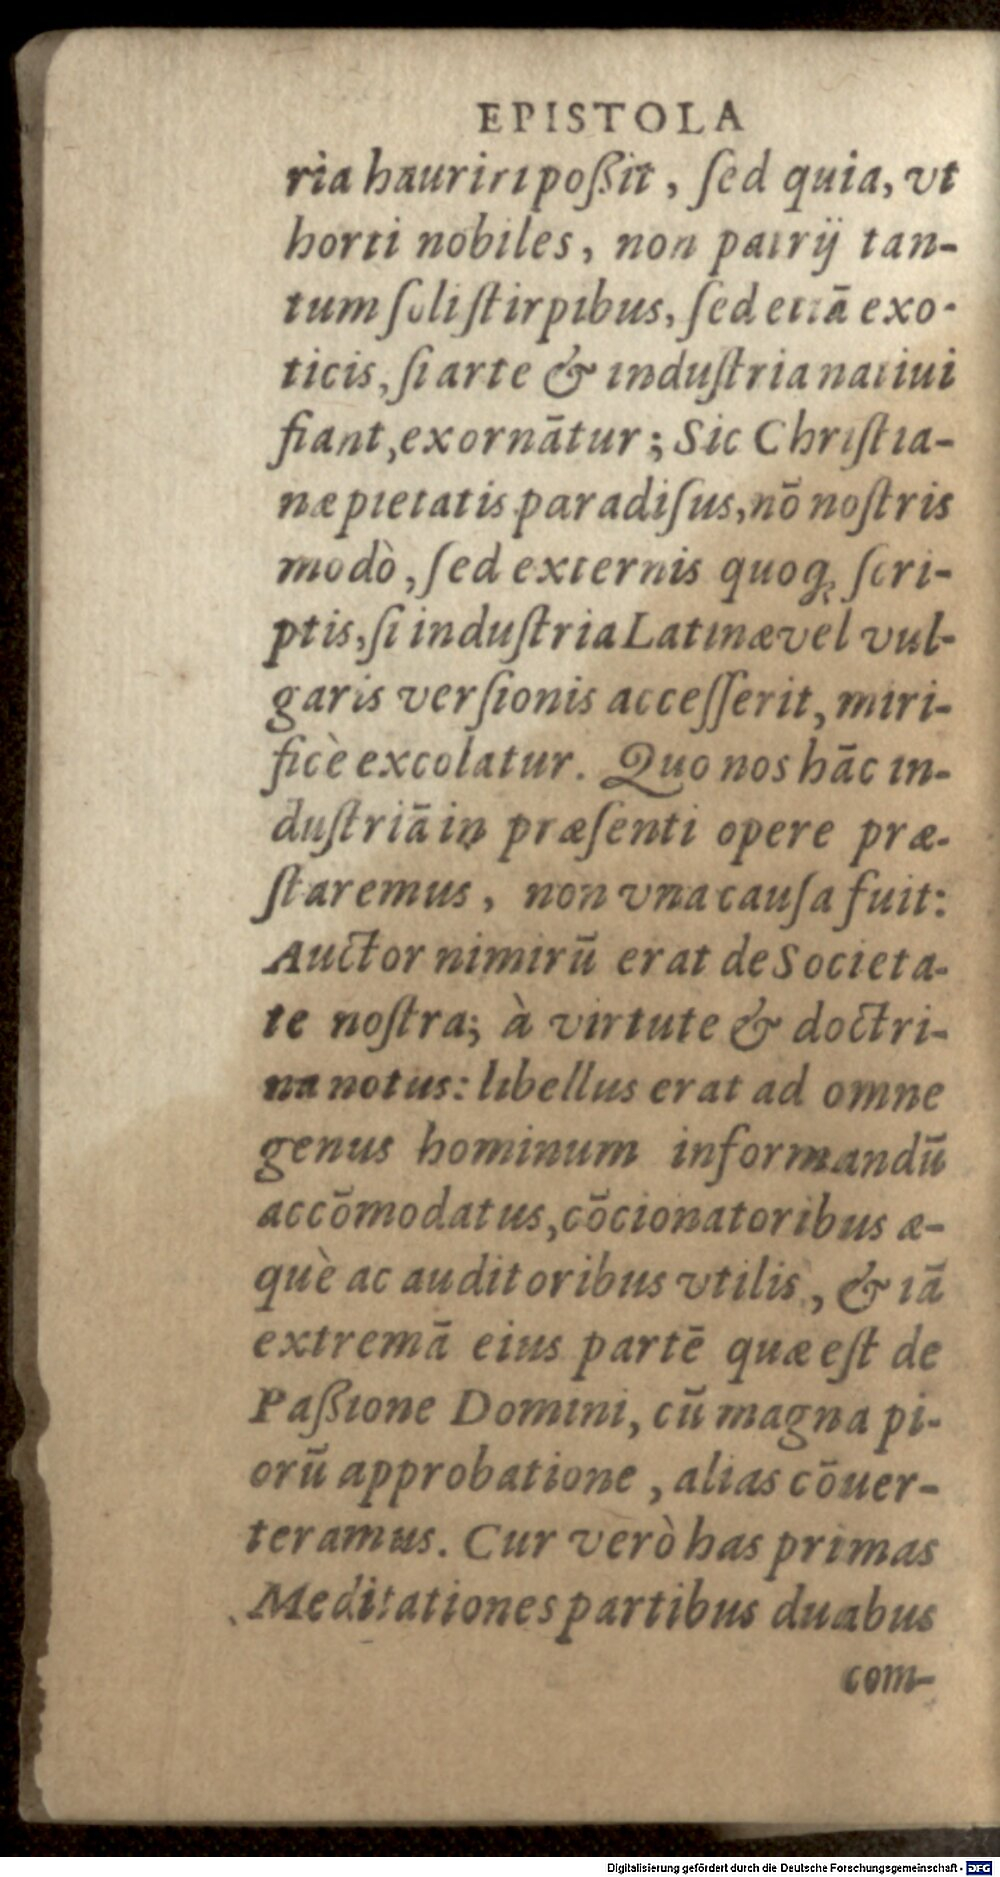 EPISTOLA
ria hauriri poßit, ſed quia, vt
horti nobiles, non patrij tan-
tum ſoli ſtirpibus, ſed etiā exo-
ticis, ſi arte & induſtria natiui
fiant, exornātur; Sic Chriſtia-
næ pietatis paradiſus, nō noſtris
modò, ſed externis quoq; ſcri-
ptis, ſi induſtria Latinæ vel vul-
garis verſionis acceſſerit, miri-
ficè excolatur. Quo nos hāc in-
duſtriā in præſenti opere præ-
ſtaremus, non vna cauſa fuit:
Auctor nimirū erat de Societa-
te noſtra; à virtute & doctri-
na notus: libellus erat ad omne
genus hominum informandū
accōmodatus, cōcionatoribus æ-
què ac auditoribus vtilis, & iā
extremā eius partē quæ eſt de
Paßione Domini, cū magna pi-
orū approbatione, alias cōuer-
teramus. Cur verò has primas
Meditationes partibus duabus
com-
Digitalisierung gefördert durch die Deutsche Forschungsgemeinschaft - DFG